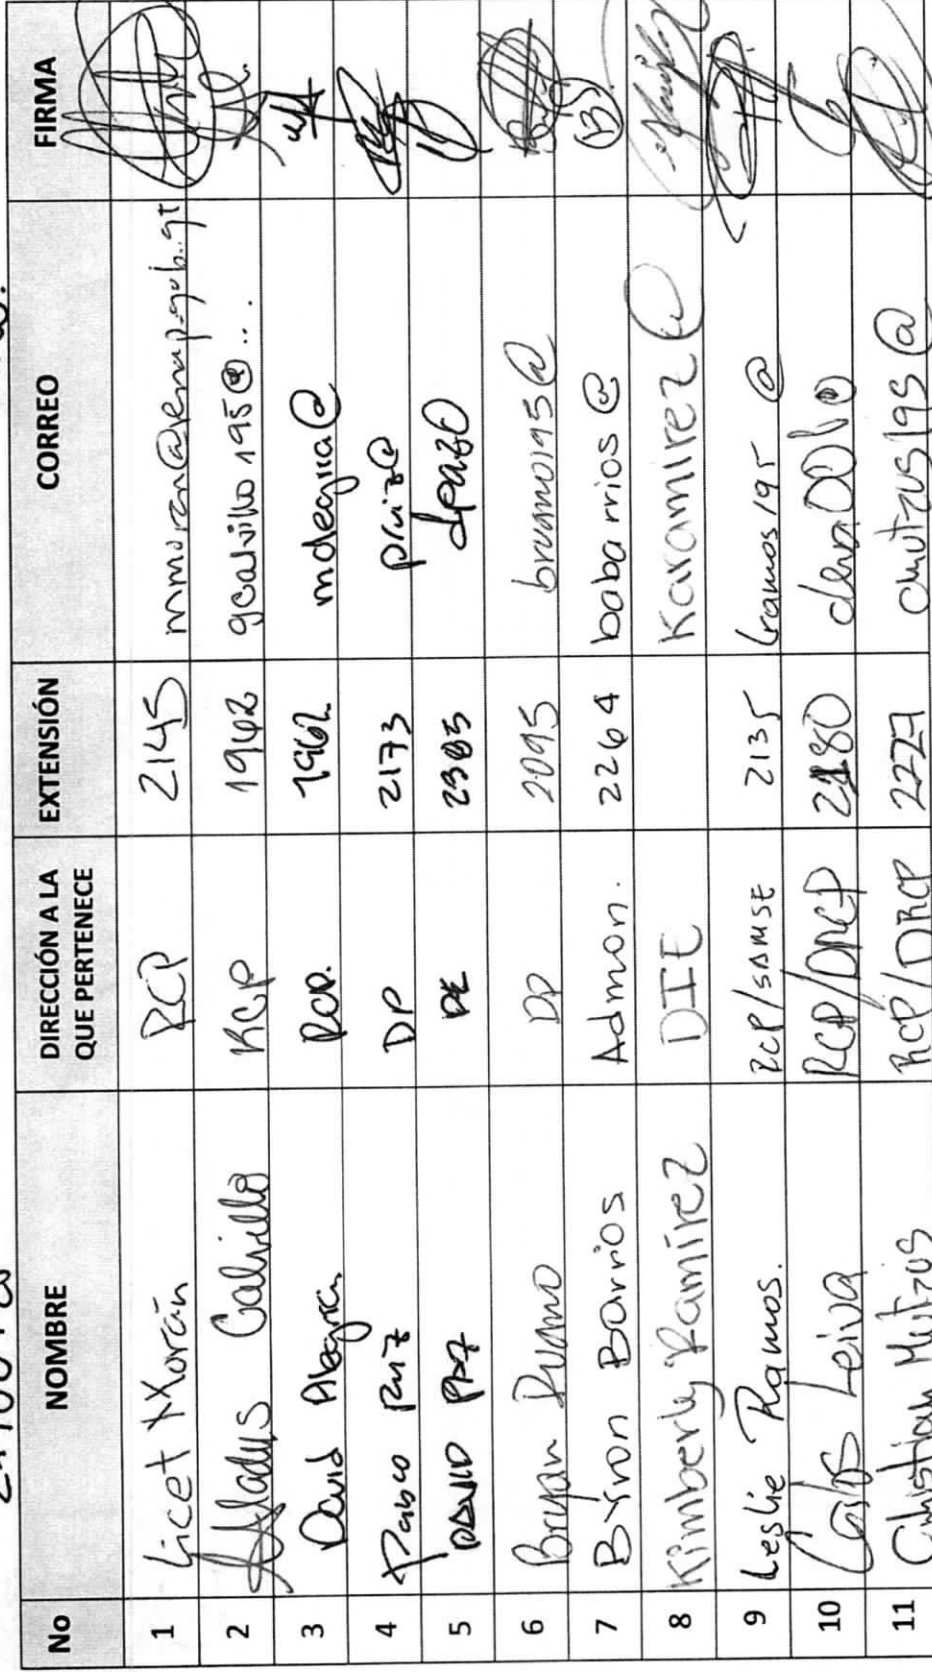 No NOMBRE DIRECCIÓN A LA QUE PERTENECE EXTENSIÓN CORREO FIRMA
1 Licet Morán RCP 2145
2 Gladys Calvillo RCP 1962 gcalvillo195@...
3 David Alegria RCP. 1962 mdalegria@
4 Pablo Ruiz DP 2173 pruiz@
5 DAVID PAZ 2383 dpaz@
6 Bryan Ruano DP 2095 bruano195@
7 Byron Barrios Admon. 2264 babarrios@
8 Kimberly Ramírez DIE Karamirez@
9 Leslie Ramos. RCP/SAMSE 2135 lramos195 @
10 Carlos Leiva RCP/DRCP 2180
11 Christian Mutzus RCP/DRCP 2227 cmutzus195@